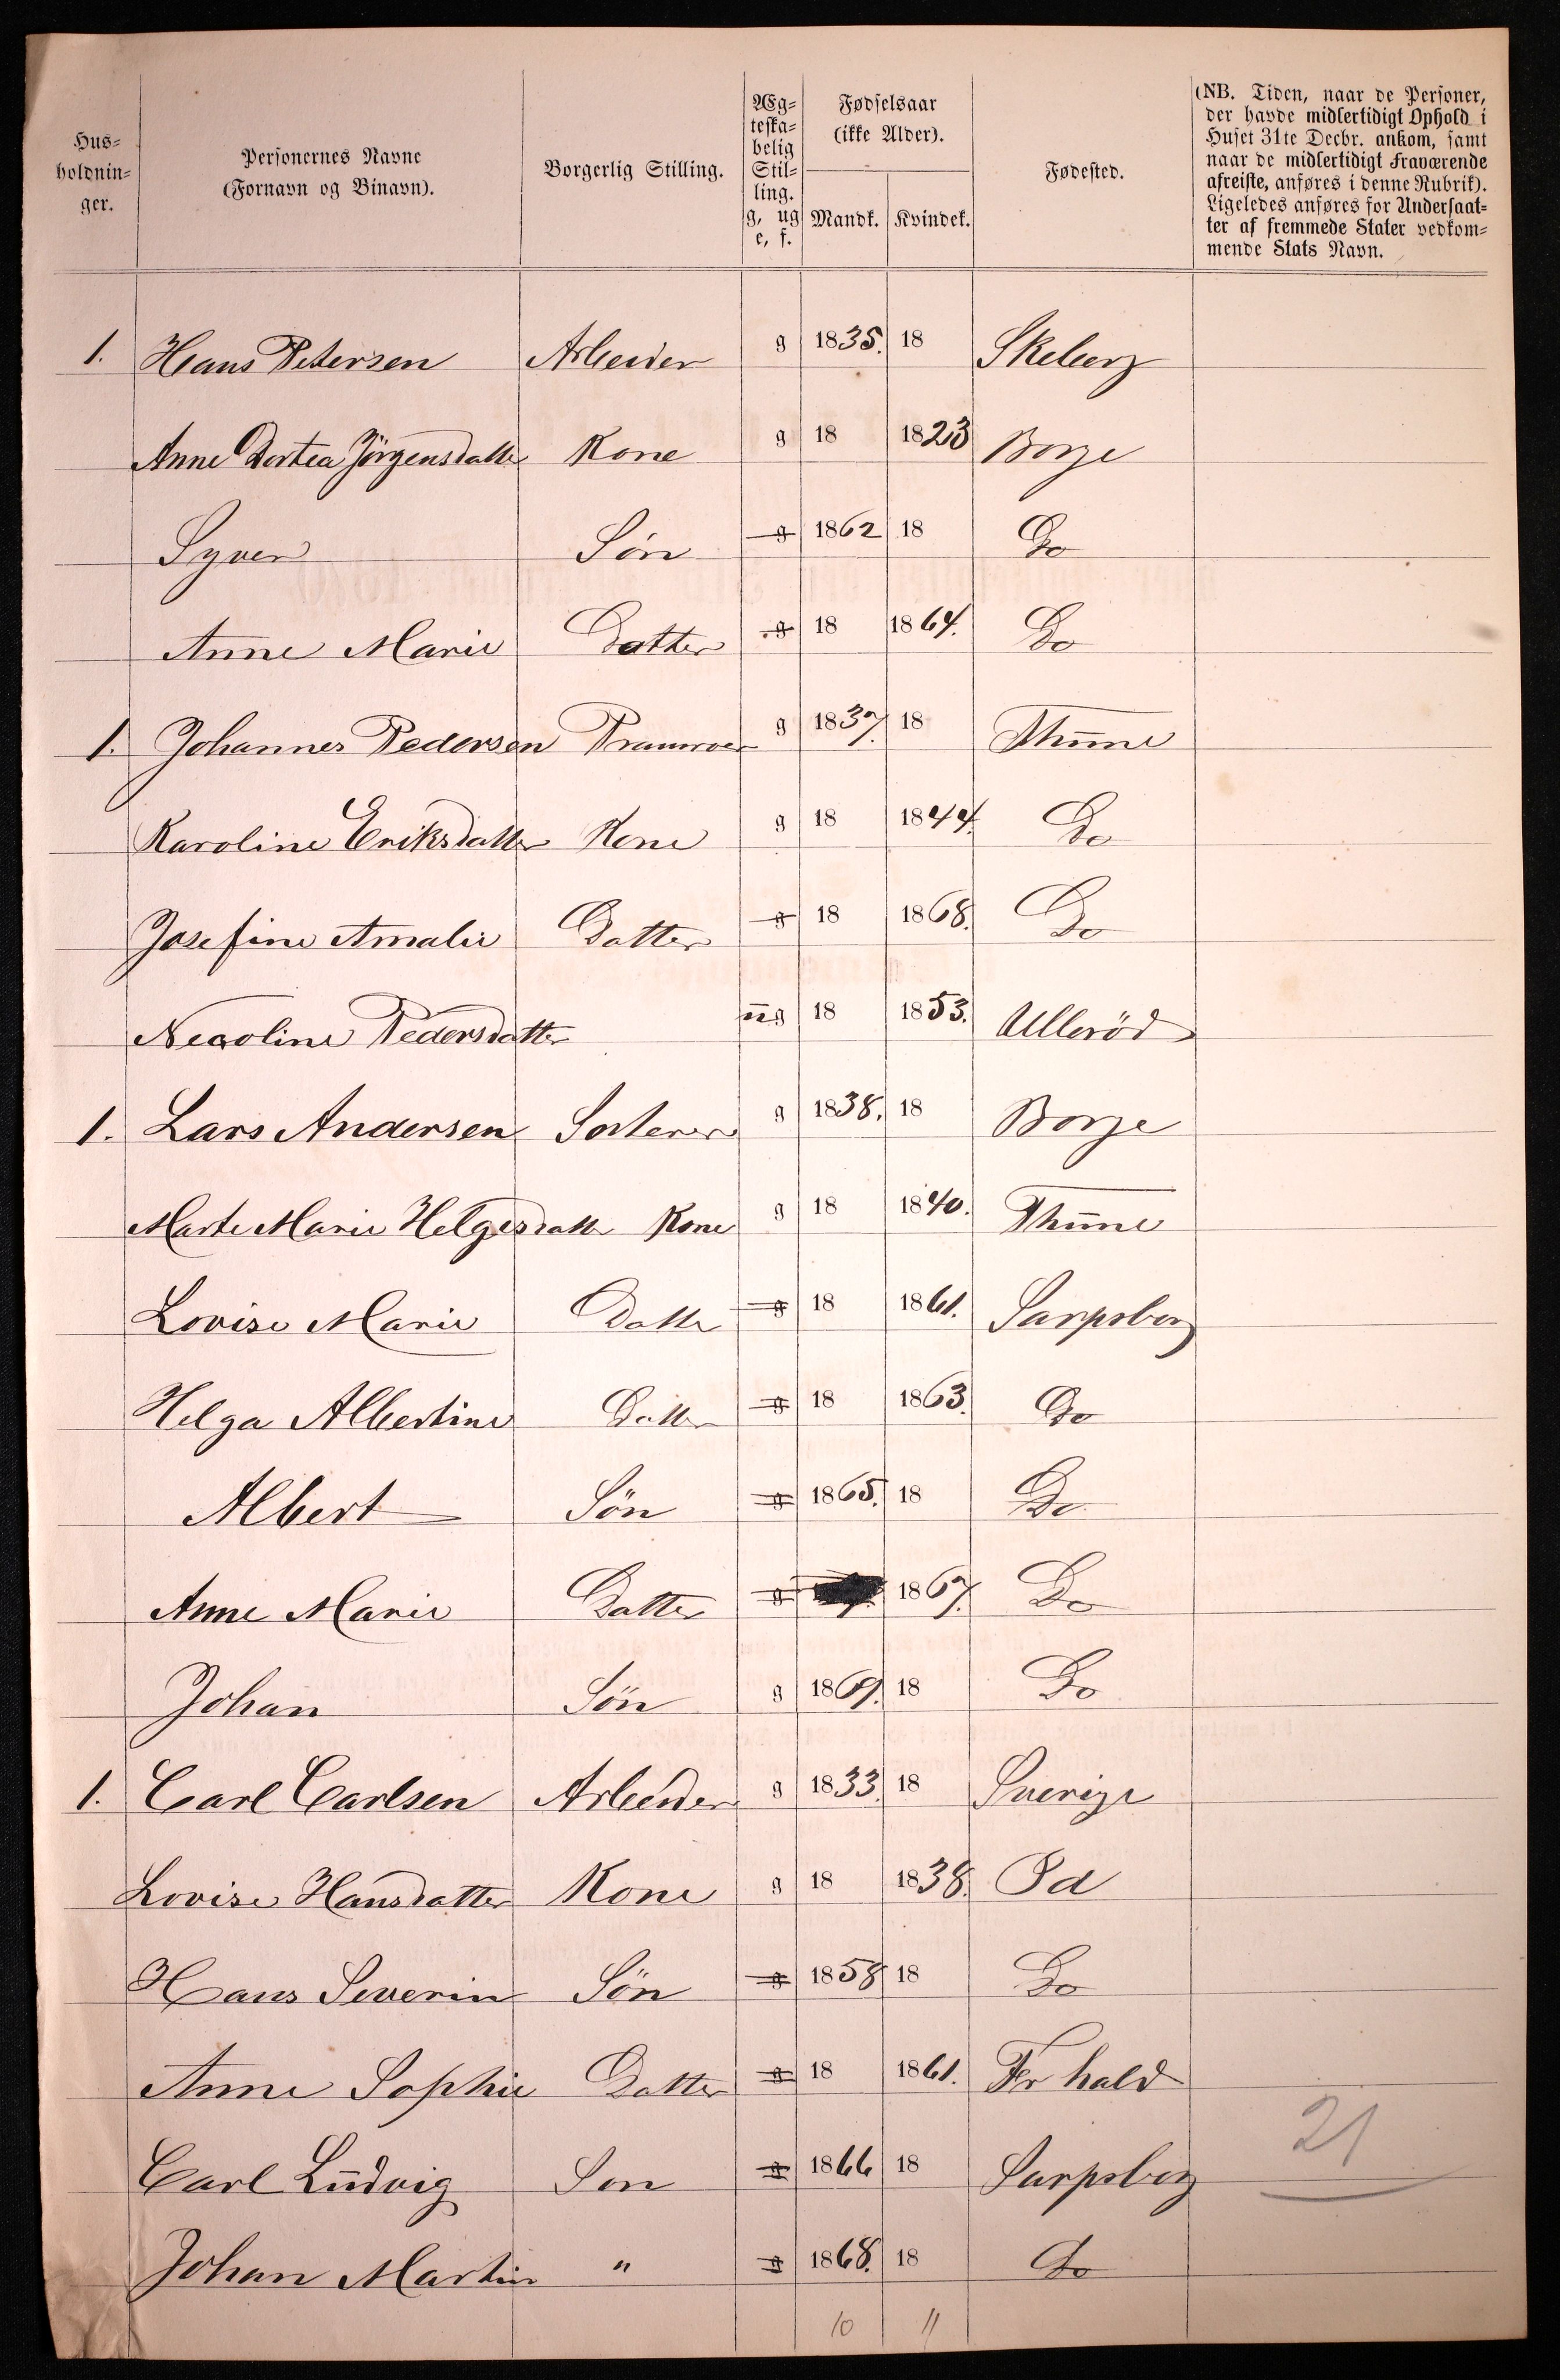 Hus-
holdnin-
ger.
Personernes Navne
(Fornavn og Binavn).
Borgerlig Stilling.
Æg-
teska-
belig
Stil-
ling.
g, ug
e, f.
Fødselsaar
(ikke Alder).
Mandk. Kvindek.
Fødested.
(NB. Tiden, naar de Personer,
der havde midlertidigt Ophold i
Huset 31te Decbr. ankom, samt
naar de midlertidigt Fraværende
afreiste, anføres i denne Rubrik).
Ligeledes anføres for Undersaat-
ter af fremmede Stater vedkom-
mende Stats Navn.
1. Hans Petersen Arbeider g 1835. 18 Skeberg
Anne Dortea Jörgensdatter Kone g 18 1823 Borge
Syver Sön g 1862 18 Do
Anne Marie Datter g 18 1864. Do
1. Johannes Pedersen Pramroer g 1837. 18 Thune
Karoline Eriksdatter Kone g 18 1844. Do
Josefine Amalie Datter g 18 1868. Do
Pedersdatter ug 18 1853. Ulleröd
1. Lars Andersen Sorterer g 1838. 18 Borge
Marte Marie Helgesdatter Kone g 18 1840. Thune
Lovise Marie Datter g 18 1861. Sarpsborg
Helga Albertine Datter g 18 1863. Do
Albert Sön g 1865. 18 Do
Anne Marie Datter g 1867. Do
Johan Sön g 1869. 18 Do
1. Carl Carlsen Arbeider g 1833. 18 Sverige
Lovise Hansdatter Kone g 18 1838. Id
Hans Severin Sön g 1858 18 Do
Anne Sophie Datter g 18 1861. Fr hald
Carl Ludvig Son g 1866 18 Sarpsborg
21
Johan Martin " g 1868. 18 Do
10 11